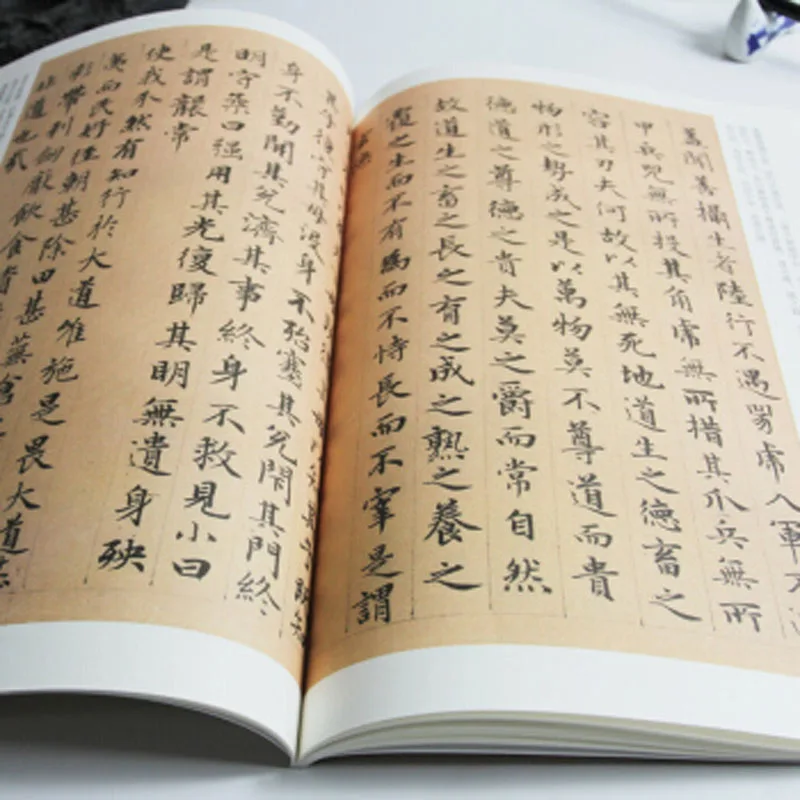 蓋聞善攝生者陸行不遇兕虎入軍不
甲兵兕無所投其角虎無所措其爪兵無所
容其刃夫何故以其無死地道生之德畜之
物形之勢成之是以萬物莫不尊道而貴
德道之尊德之貴夫莫之爵而常自然
故道生之畜之長之育之成之熟之養之
覆之生而不有爲而不恃長而不宰是謂
玄德
其子復守其母沒身不殆塞其兌閇其門終
身不勤開其兌濟其事終身不救見小曰
明守柔曰强用其光復歸其明無遺身殃
是謂襲常
使我介然有知行於大道唯施是畏大道甚
夷而民好徑朝甚除田甚蕪倉
彩帶利劍厭飲食資
非道也哉